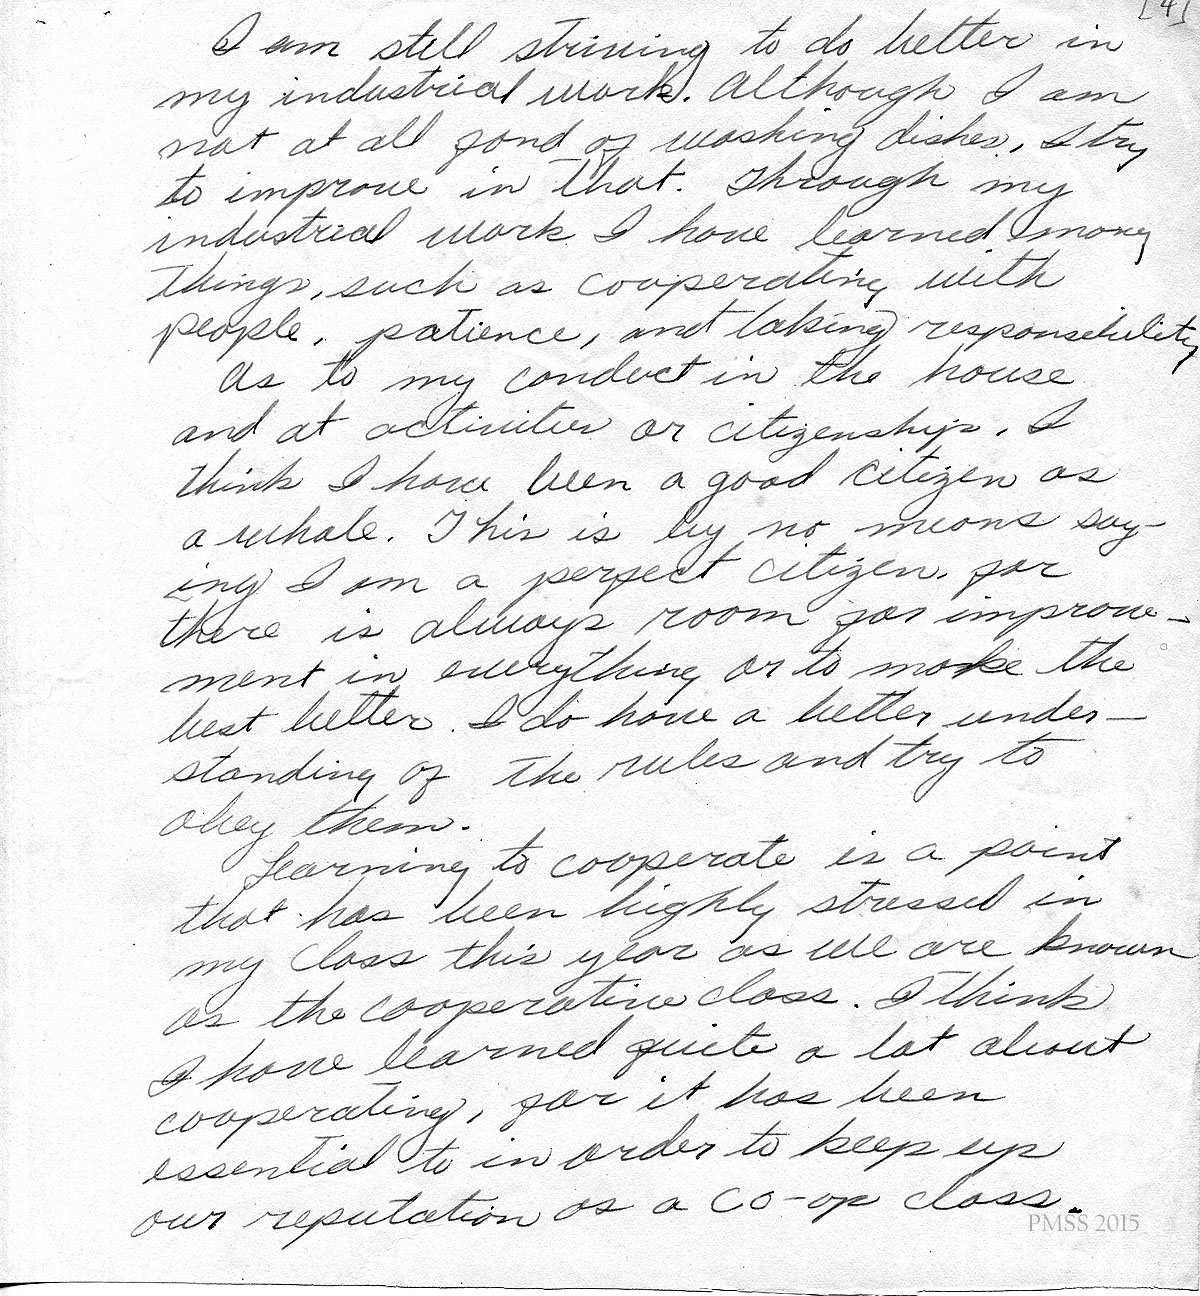 [4]
I am still striving to do better in
my industrial work. Although I am
not at all fond of washing dishes, I try
to improve in that. Through my
industrial work I have learned many
things, such as cooperating with
people, patience, and taking responsibility
As to my conduct in the house
and at activities or citizenship, I
think I have been a good citizen as
a whole. This is by no means say-
ing I am a perfect citizen. for
there is always room for improve-
ment in everything or to make the
best better. I do have a better under-
standing of the rules and try to
obey them.
Learning to cooperate is a point
that has been highly stressed in
my class this year as we are known
as the cooperative class. I think
I have learned quite a lot about
cooperating, for it has been
essential to in order to keep up
our reputation as a co-op class.
PMSS 2015